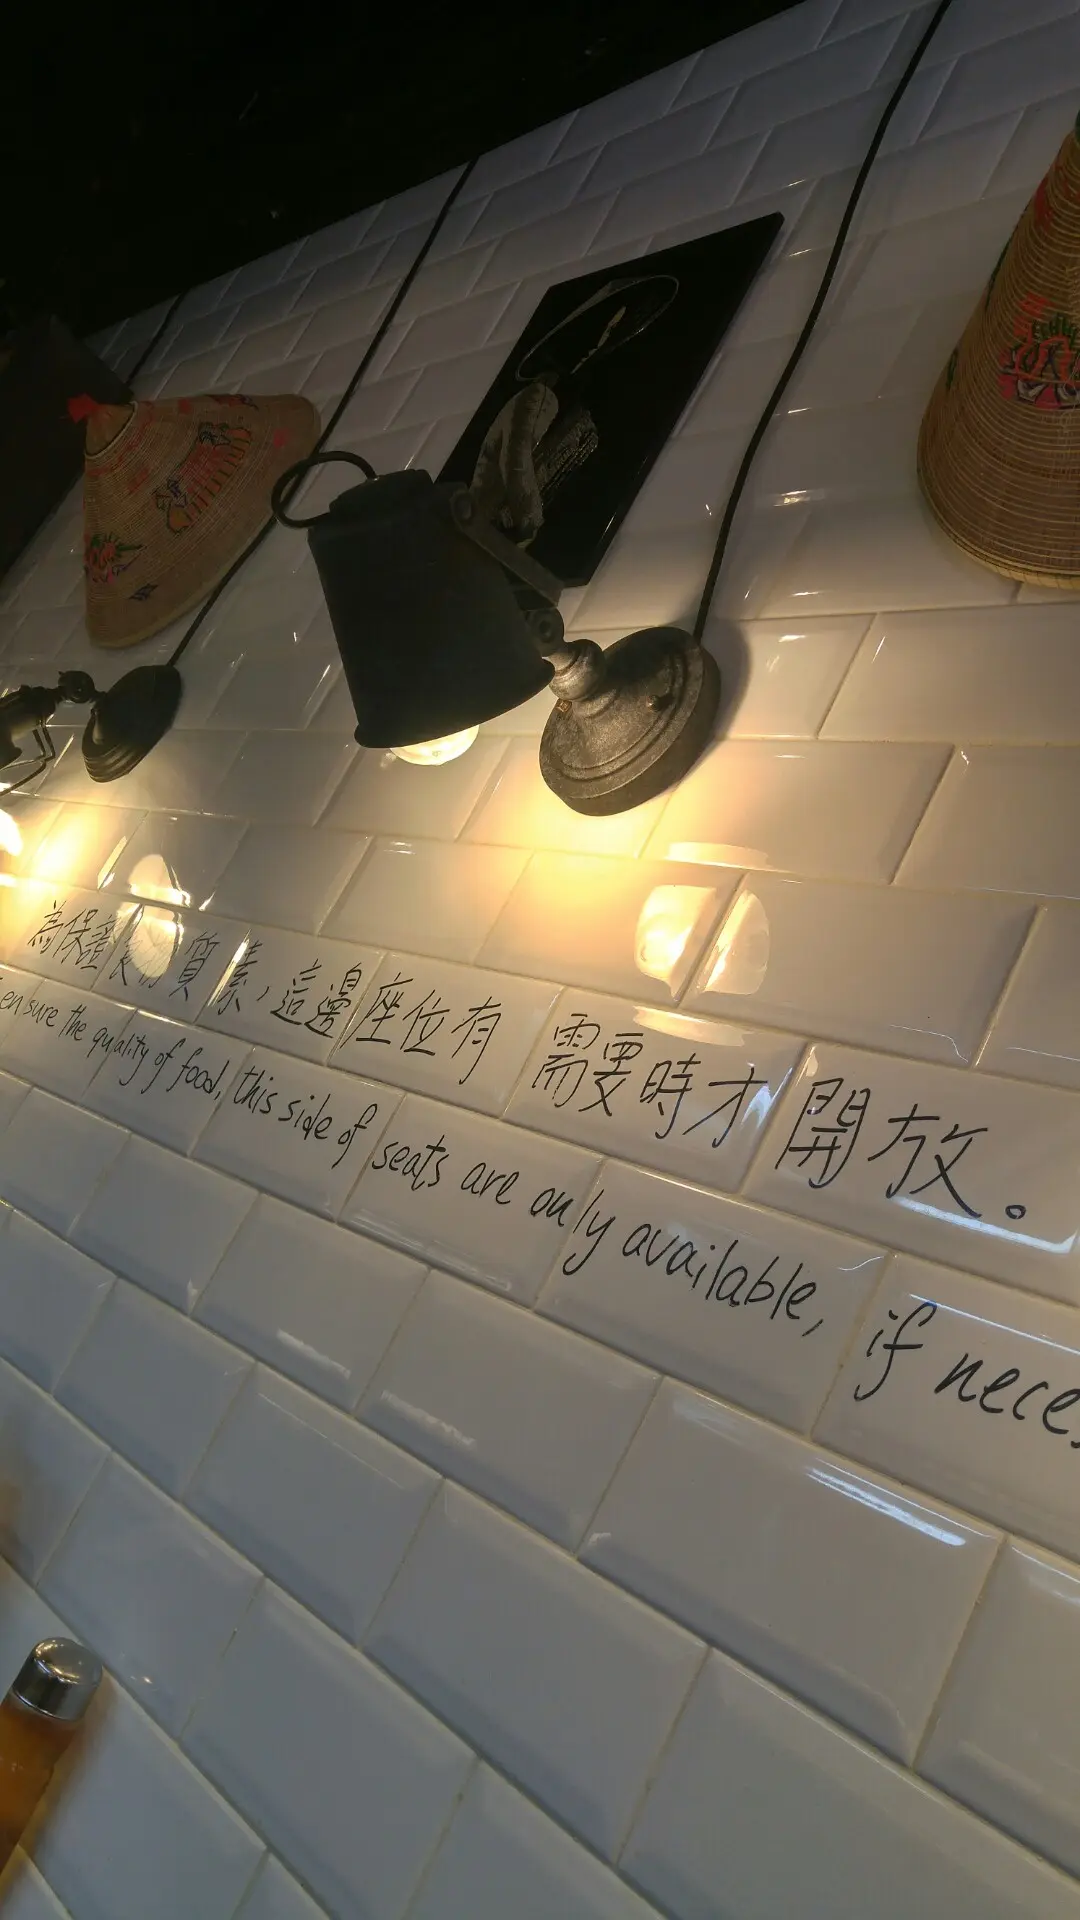 為保證食物質素，這邊座位有 需要時才開放。
ensure the quality of food, this side of seats are only available, if neces